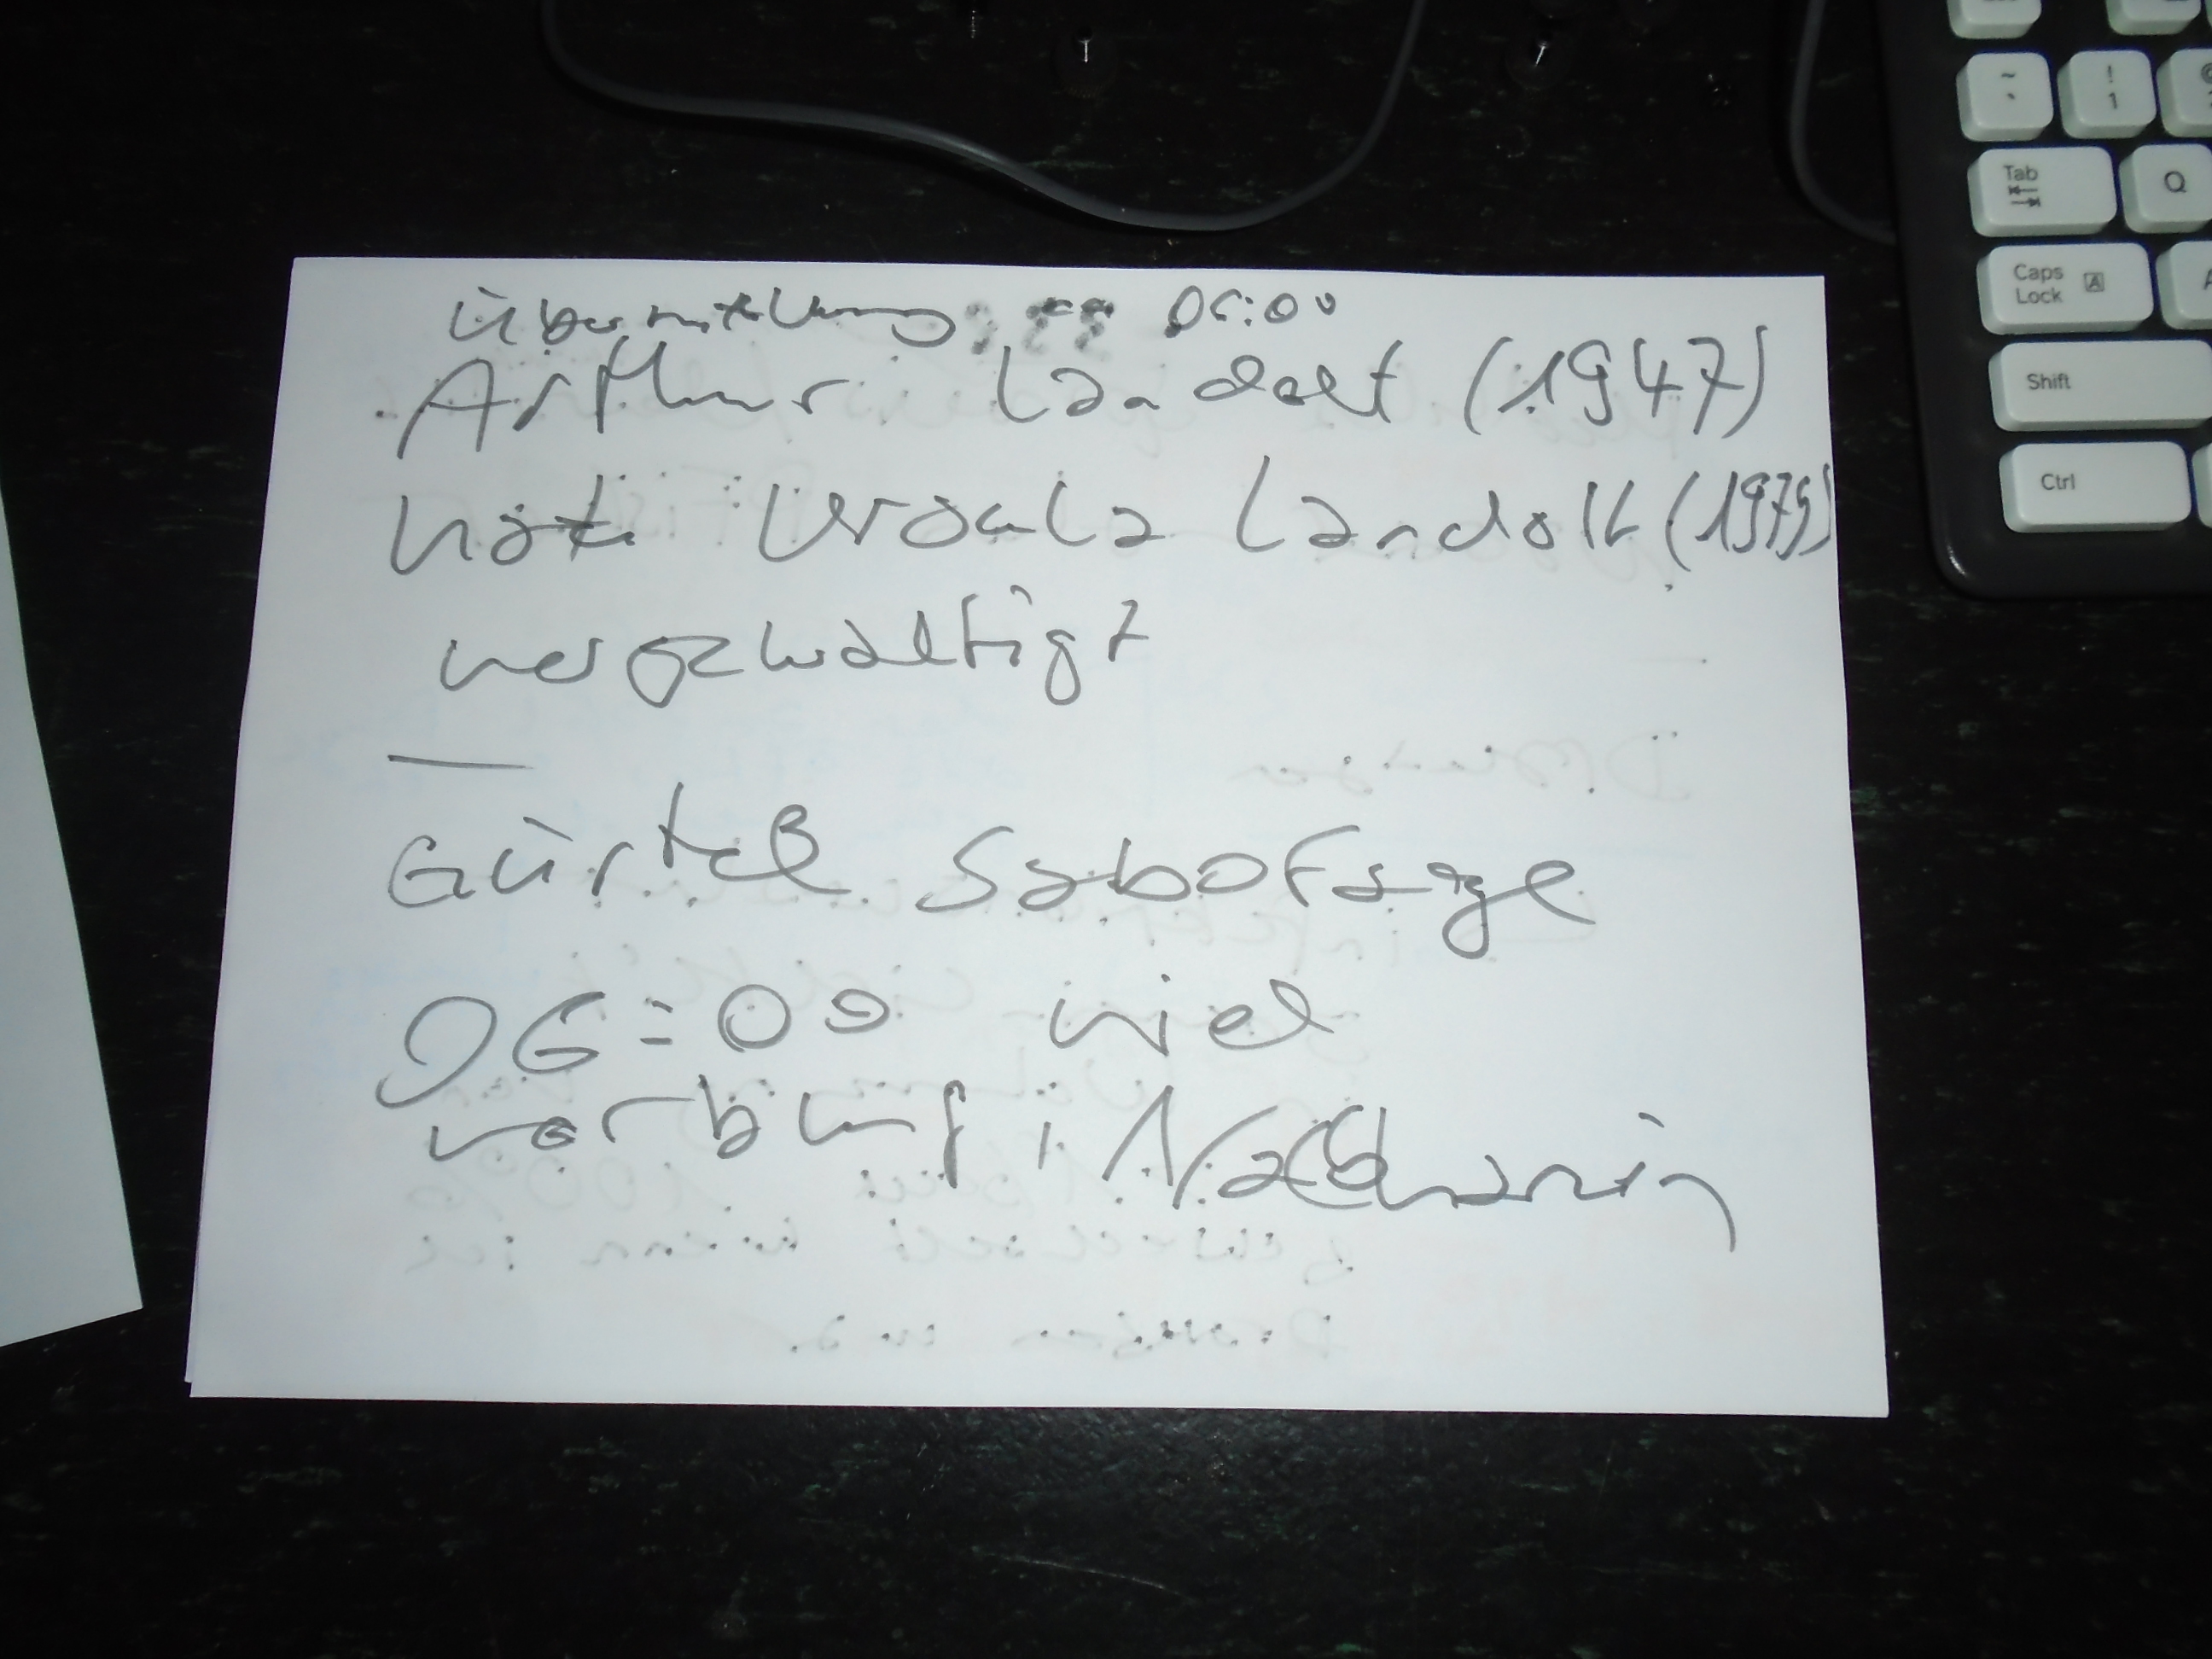 Übermittlung 06:00
Arthur Landolt (1947)
hat Ursula Landolt (1979)
vergewaltigt
—
Gürtel Sabotage
06:00 viel
, Nachbarin
~ `
! 1
Tab
Q
Caps Lock A
Shift
Ctrl